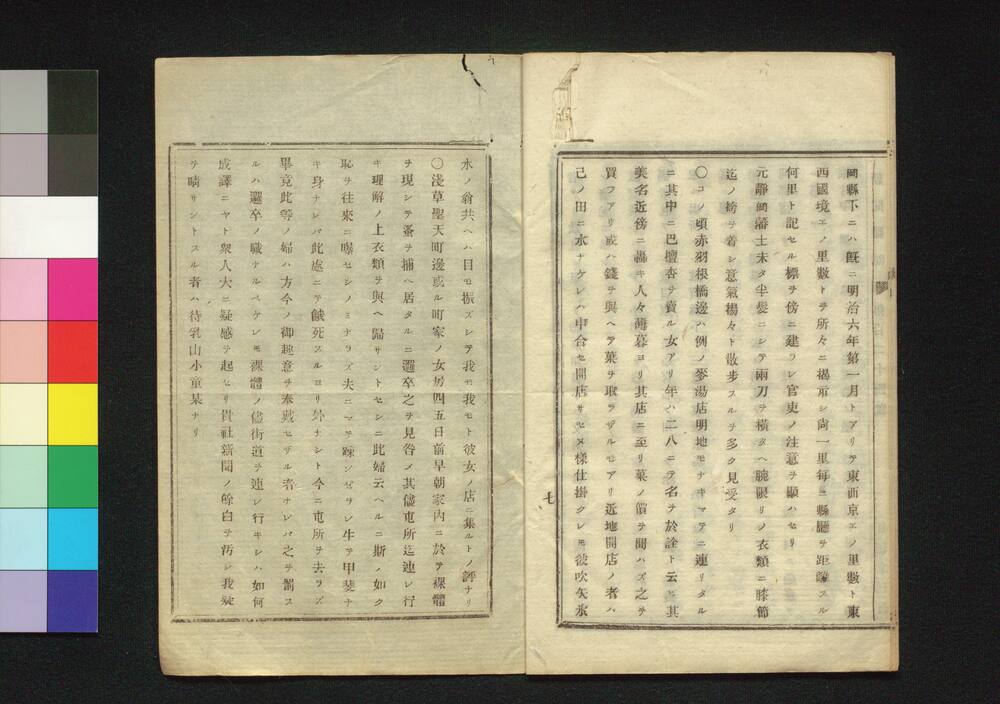 岡縣下ニハ既ニ明治六年第一月トアリテ東西京エノ里數ト東
西國境エノ里數トヲ所々ニ揭示シ尙一里每ニ縣廳ヲ距離スル
何里ト記セル標ヲ傍ニ建ラレ官吏ノ注意ヲ顯ハセリ
元靜岡藩士未タ半髮ニシテ兩刀ヲ橫タヘ腕限リノ衣類ニ膝節
迄ノ袴ヲ着シ意氣揚々ト散步スルヲ多ク見受タリ
〇コノ頃赤羽根橋邊ハ例ノ麥湯店明地モナキマテニ連リタル
ニ其中ニ巴壇杏ヲ賣ル女アリ年ハ二八ニテ名ヲ於詮ト云フ其
美名近傍ニ轟キ人々薄暮ヨリ其店ニ至リ菓ノ價ヲ聞ハズ之ヲ
買フアリ或ハ錢ヲ與ヘテ菓ヲ取ラザルモアリ近地開店ノ者ハ
己ノ田ニ水ナケレハ申合セ開店サセヌ樣仕掛クレモ彼吹矢氷
七
水ノ翁共ヘハ目モ振ズシテ我モ我モト彼女ノ店ニ集ルトノ評ナリ
〇淺草聖天町邊或ル町家ノ女房四五日前早朝家內ニ於テ裸體
ヲ現シテ蚤ヲ捕ヘ居タルニ邏卒之ヲ見咎メ其儘屯所迄連レ行
キ理解ノ上衣類ヲ與ヘ歸サントセシニ此婦云ヘルニ斯ノ如ク
恥ヲ往來ニ曝セシノミナラズ夫ニマテ疎ンゼラレ生テ甲斐ナ
キ身ナレバ此處ニテ餓死スルヨリ外ナシト今ニ屯所ヲ去ラズ
畢竟此等ノ婦ハ方今ノ御趣意ヲ奉戴セザル者ナレバ之ヲ罰ス
ルハ邏卒ノ職ナルベケレモ裸體ノ儘街道ヲ連レ行キシハ如何
成譯ニヤト衆人大ニ疑惑ヲ起セリ貴社新聞ノ餘白ヲ汚シ我疑
ヲ晴サントスル者ハ待乳山小童某ナリ